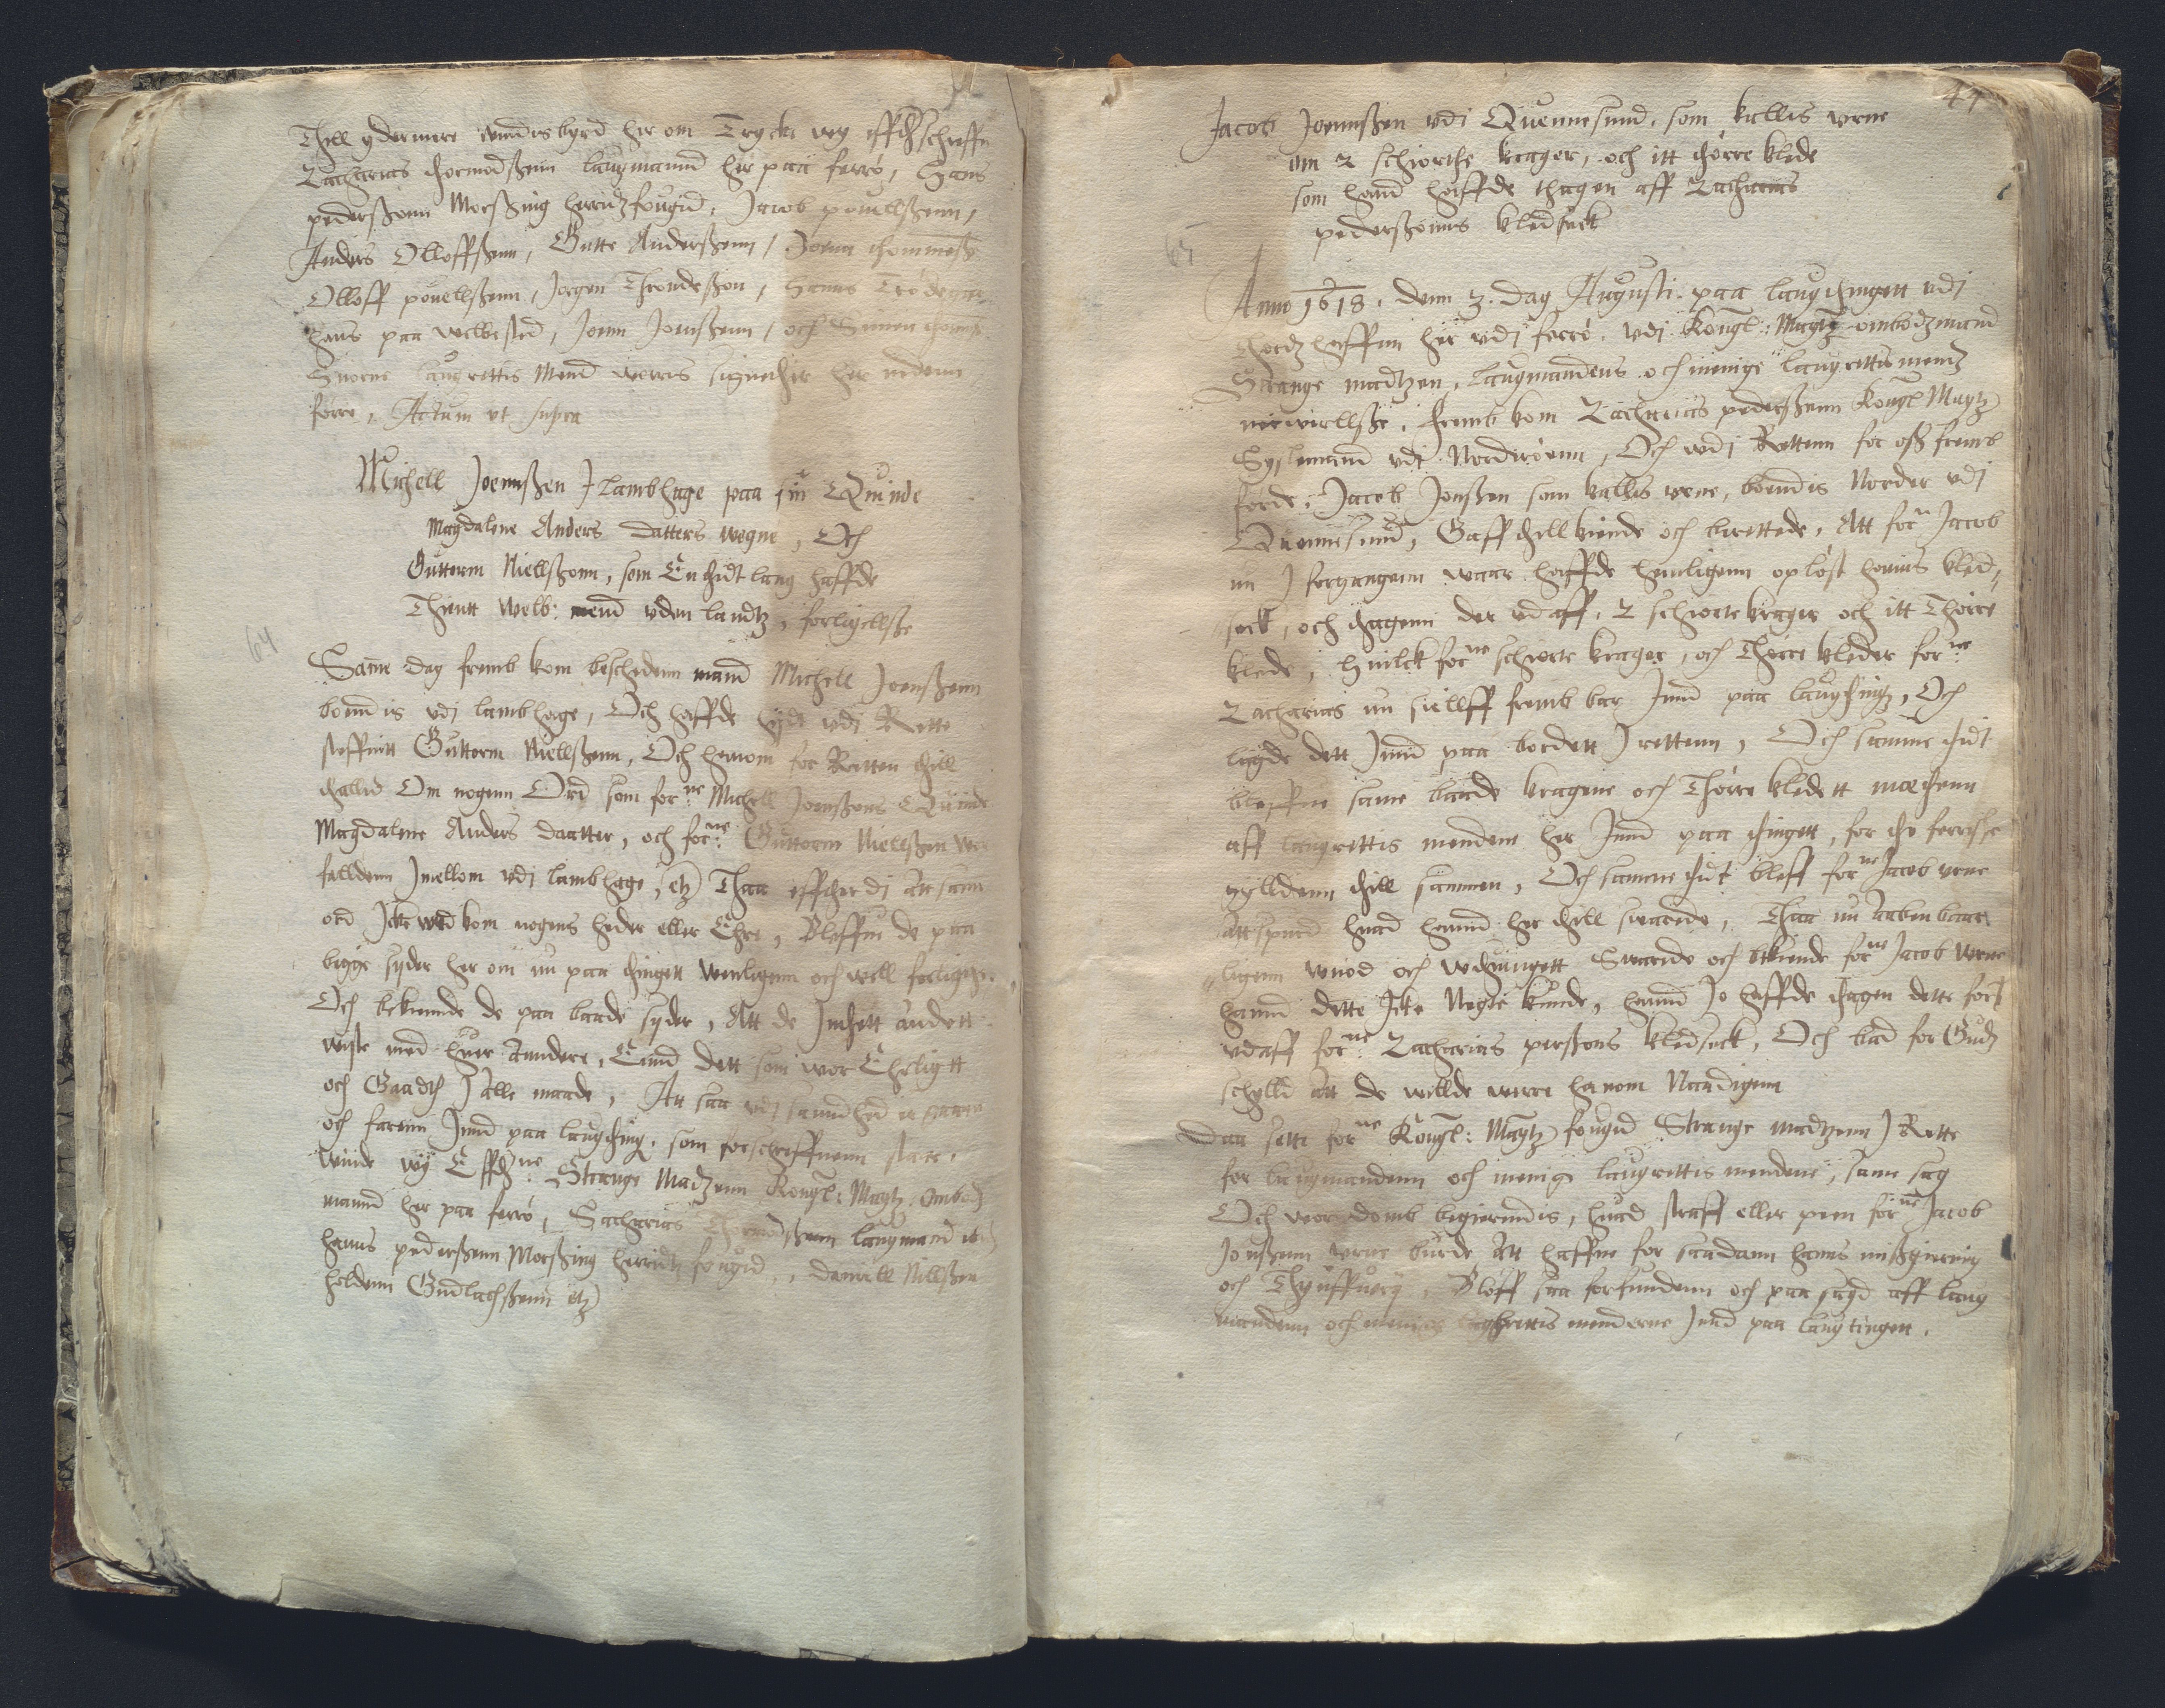 Thill ydermere vindisbyrd her om Trycke wy effthschreffne
Zacharias thormodßenn laugmannd her paa ferrö, Hans
pederßonn Morßing herridzfougid, Jacob pouellßenn,
Anders Olloffßenn, Gutte Anderßenn, Joenn thommeß
Olloff pouellßenn, Jørgen Throndeßon, Hanns
Hans paa welbested, Joenn Joenßenn, och Simon
Suorne laugrettis Mend worris signether her nedenn
förre, Actum ut supra
Michell Joennßen J lambhage paa sin Quinde
Magdalene Anders datters wegne, Och
Guttorm Nielßonn, som En thidt lang haffde
Thientt Welb: mend vden landtz, forligellße
64
Same dag fremb kom beschedenn mand Michell Joenßenn
boendis vdj lambhage, Och haffde hydt vdj Rette
steffnitt Guttorm Nielßenn, Och hannom for Retten thill
thalled Om nogenn Ord som forne Michell Joenßons Quinde
Magdalene Anders daatter, och forne: Guttorm Nielßen
falldenn Jmellom vdj lambhage, etz Thaa effther dj att sam
ord Jcke wed kom nogens heder eller Ehre, Bleffue de paa
begge syder her om nu paa thingett wenligenn och well
Och bekiennde de paa baade syder, Att de Jnthett andett
wiste med huer Anndere,Ennd dett som wor Ehrligtt
och Gaadth J alle maade, Att saa vdj sandhed er
och farenn Jnnd paa laugthing, som forschreffuenn staar,
winde wy Effthne: Strange Madzenn Kongl: Maytz: Ombodz
mannd her paa ferrö, Zacharias Thormodßenn laugmand
hanns pederßenn Morßing herridz fougid, daniell Nillßen
holdenn Gudlachßenn etz
44
Jacob Joennßen vdi Quennesund, som kallis vrne
om 2 schiorthe krager, och itt thörre klede
som hand haffde thagen aff Zacharias
pederßonns kledseck
65
Anno 1618. denn 3. dag Augusti. paa laugthingett vdj
Thordz haffnn her vdj ferrö. vdj Kongl: Maytz ombodzmand
Strange madtzen, laugmandens och menige laugrettismendz
neruerellße. fremb kom Zacharias pederßenn Kongl Maytz
Syslemand vdj Norderöenn, Och vdj Rettenn for oß fremb
förde, Jacob Jonßen som kallis vrne, boendis Norder vdj
Quennesund, Gaff thill kiende och berettede, Att forn Jacob
nu J forgangenn waar haffde hemligenn oplöst hanns kled,,
seck, och thagenn der vd aff, 2 schiorte krager och itt Thörre
klede, Huilck forne schiorte krager, och Thörre kleder forne:
Zacharias nu siellff fremb bar Jnnd paa laugthingtz, Och
lagde dett Jnnd paa bordett J rettenn, Och samme thidt
bleffue same baade kragene och Thörre kledett
aff laugrettis mendene her Jnnd paa thingett, for
gyldenn thill sammen, Och samme thidt bleff forne Jacob vrne
Attspurd huad hannd her thill suarede, Thaa nu aabenbaar
ligenn vnöd och wthuingett Suarede och bekiende forne Jacob vrne
hannd dette Jcke Negte kunde, hannd Jo haffde thagen dette
vdaff forne: Zacharias perßons kledseck, Och bad for Gudz
schylld att de willde werre hannom Naadigenn
Daa sette forne Kongl: Maytz fougid Strange madtzenn J Rette
for laugmandenn och menige laugrettis mendene, same sag
Och wor domb begierendis, huad straff eller peen forne Jacob
Jonßenn vrne burde Att haffue for saadann hanns mißgierning
och Thyuffueri, Bleff saa forfundenn och paa sagd aff laug
mandenn och menige laghrettis menderne Jnnd paa laugtingett.